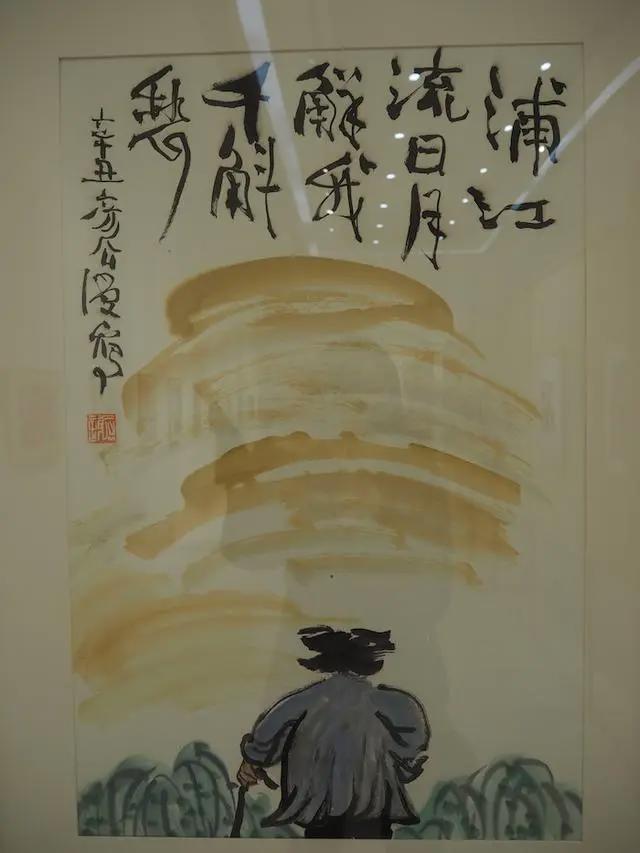 浦江
流日月
觧我
千斛
愁
辛丑彦公漫寫